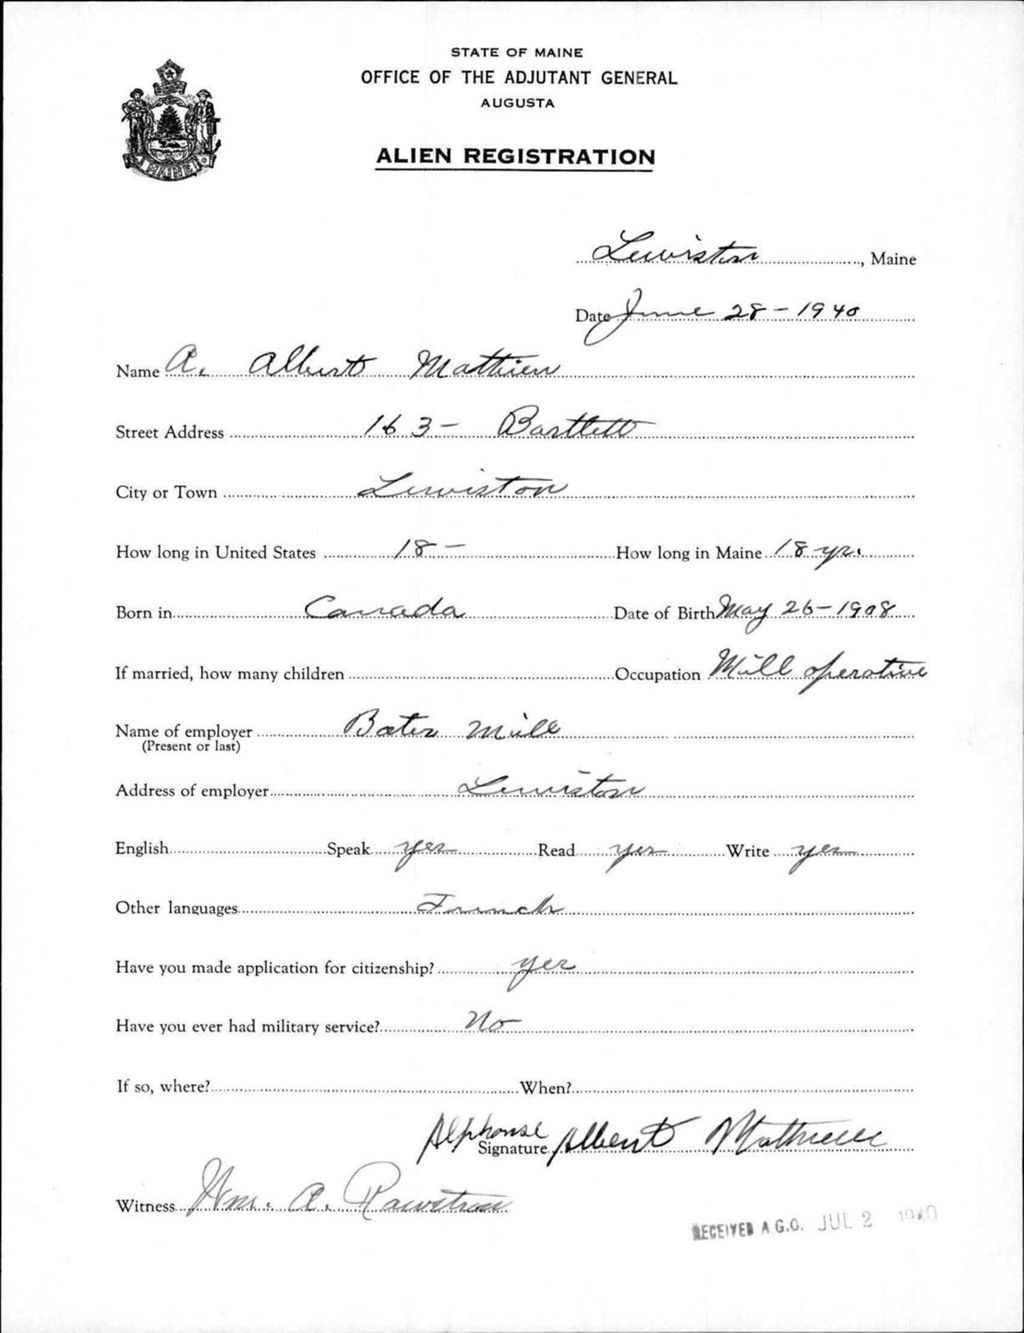 STATE OF MAINE
OFFICE OF THE ADJUTANT GENERAL
AUGUSTA
ALIEN REGISTRATION
MAINE
Lewiston, Maine
Date June 28-1940
Name A. Albert Mathieu
Street Address 163- Bartlett
City or Town Lewiston
How long in United States 18 - How long in Maine 18 yr.
Born in Canada Date of Birth May 26-1908
If married, how many children Occupation Mill operative
Name of employer Bates Mill
(Present or last)
Address of employer Lewiston
English Speak yes Read yes Write yes
Other languages French
Have you made application for citizenship? yes
Have you ever had military service? No
If so, where? When?
Signature Alphonse Albert Mathieu
Witness Wm. A. Rawstron
RECEIVED A G.O. JUL 2 1940